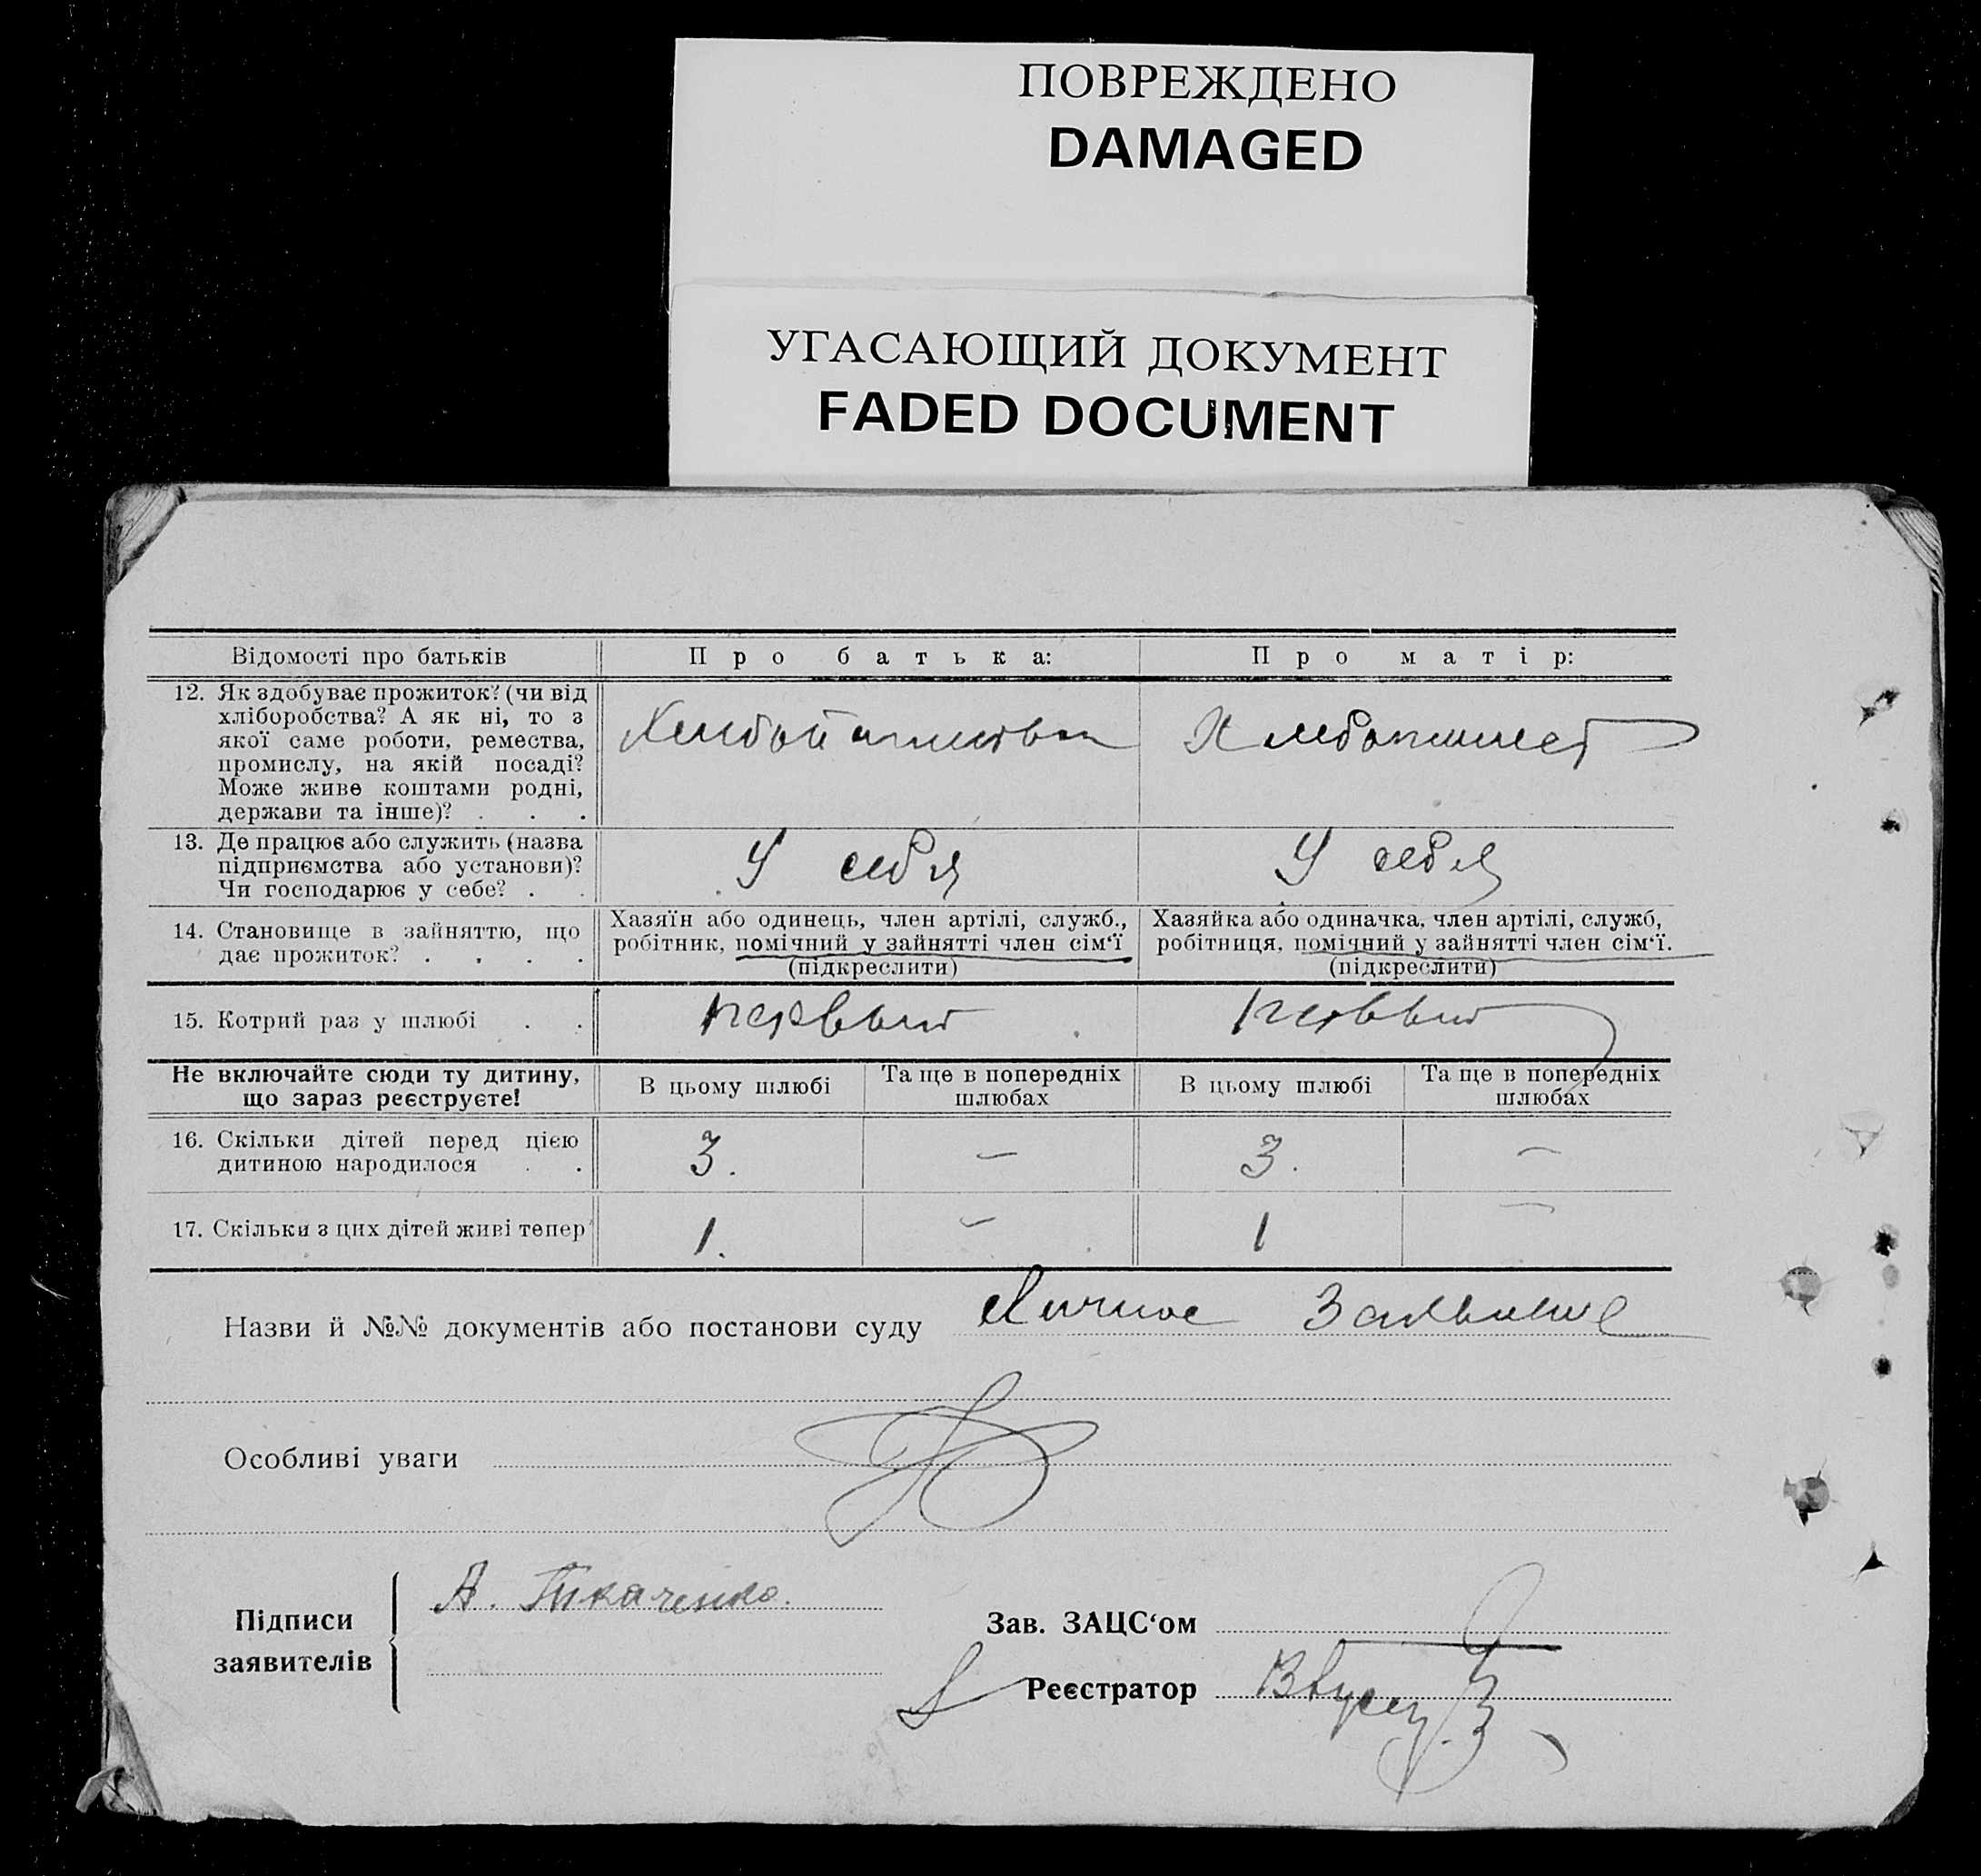 ПОВРЕЖДЕНО
DAMAGED
УГАСАЮЩИЙ ДОКУМЕНТ
FADED DOCUMENT
Відомості про батьків Про батька: Про матір:
12. Як здобуває прожиток? (чи від
хліборобства? А як ні, то з
якої саме роботи, ремества,
промислу, на якій посаді?
Може живе коштами родні,
держави та інше)? . . .
13. Де працює або служить (назва
підприємства або установи)?
Чи господарює у себе? . .
У себя У себя
14. Становище в зайняттю, що
дає прожиток? . . . .
Хазяїн або одинець, член артілі, служб.,
робітник, помічний у зайнятті член сім‘ї
(підкреслити)
Хазяйка або одиначка, член артілі, служб,
робітниця, помічний у зайнятті член сім‘ї.
(підкреслити)
15. Котрий раз у шлюбі . . первый первый
Не включайте сюди ту дитину,
що зараз реєструєте!
В цьому шлюбі Та ще в попередніх
шлюбах
В цьому шлюбі Та ще в попередніх
шлюбах
16. Скільки дітей перед цією
дитиною народилося . .
3. — 3. —
17. Скільки з цих дітей живі тепер 1. — 1 —
Назви й №№ документів або постанови суду Личное Заявление
Особливі уваги
Підписи
заявителів
А. Ткаченко.
Зав. ЗАЦС‘ом
Реєстратор